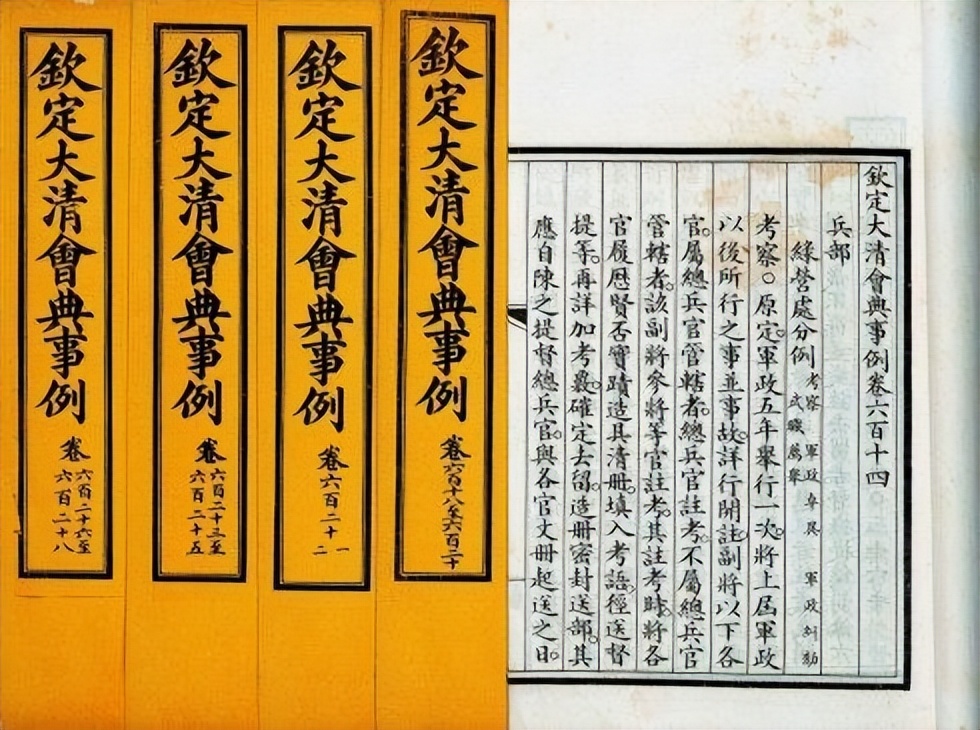 欽定大清會典事例卷六百十四
兵部
綠營處分例 考察 軍政卓異 軍政糾劾 武職薦舉
考察○原定軍政五年舉行一次。將上屆軍政
以後所行之事並事故。詳行開註。副將以下各
官。屬總兵官管轄者。總兵官註考。不屬總兵官
管轄者。該副將參將等官註考。其註考時。將各
官履歷賢否實蹟造具清冊。填入考語。徑送督
提等。再詳加考覈。確定去留。造冊密封送部。其
應自陳之提督總兵官。與各官文冊起送之日。
欽定大清會典事例
卷六百十八至六百二十
欽定大清會典事例
卷六百二十一二
欽定大清會典事例
卷六百二十三至六百二十五
欽定大清會典事例
卷六百二十六至六百二十八